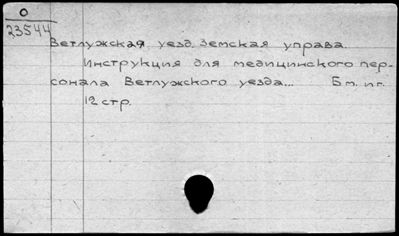 О
23544
Ветлужская уезд. Земская управа.
Инструкция для медицинского пер-
сонала Ветлужского уезда... Б м. и г.
12 стр.